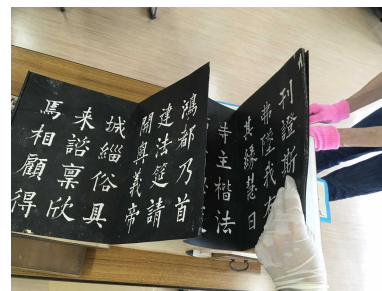 刊證斯
弗墜我有
其緣慧日
寺主楷法
鴻都乃首
建法筵請
開奧義帝
城緇俗具
来諮稟欣
焉相顧得